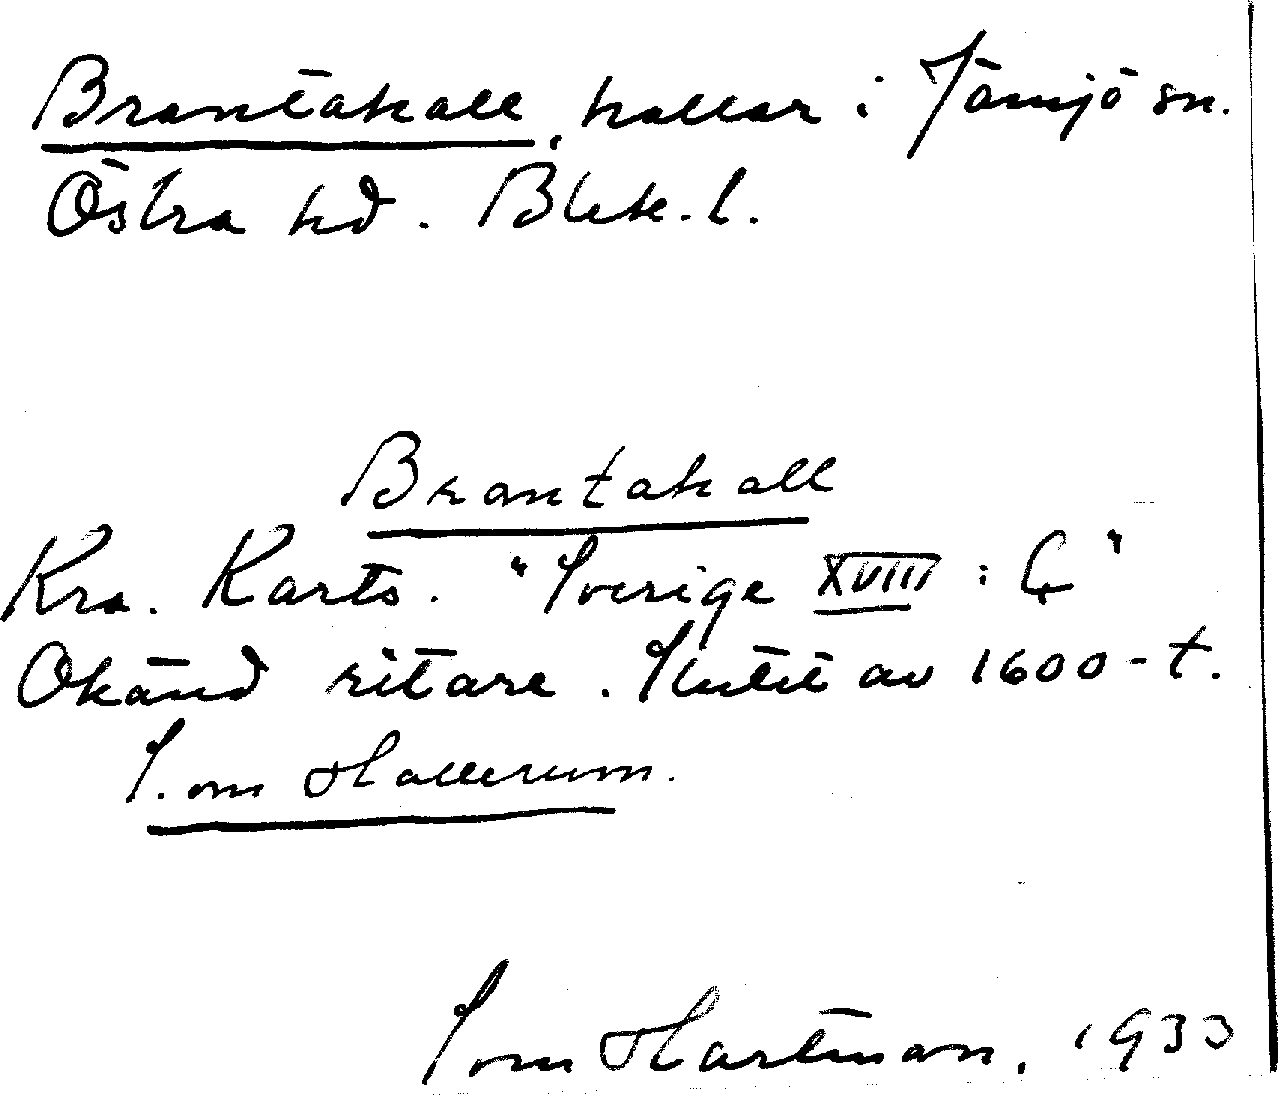 Brantahall, hallar i Jämjö sn.
Östra hd. Blek. l.
Brantahall
Kra. Karts. "Sverige XVIII : G"
Okänd ritare. Slutet av 1600-t.
S. om Hallerum.
Tom Hartman, 1933